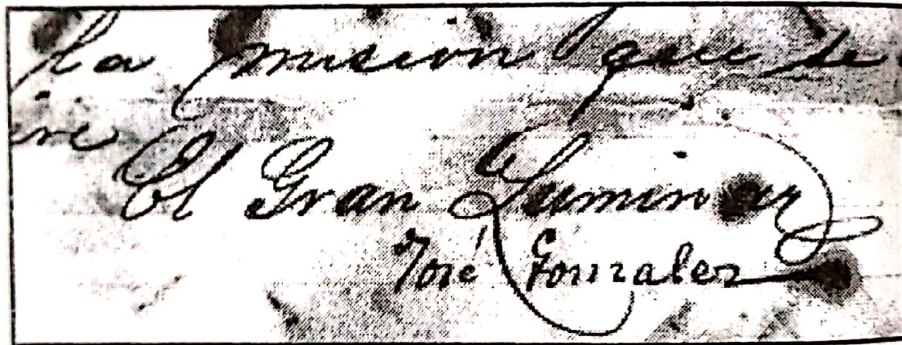 la mision que se
re
El Gran Luminar
José Gonzalez